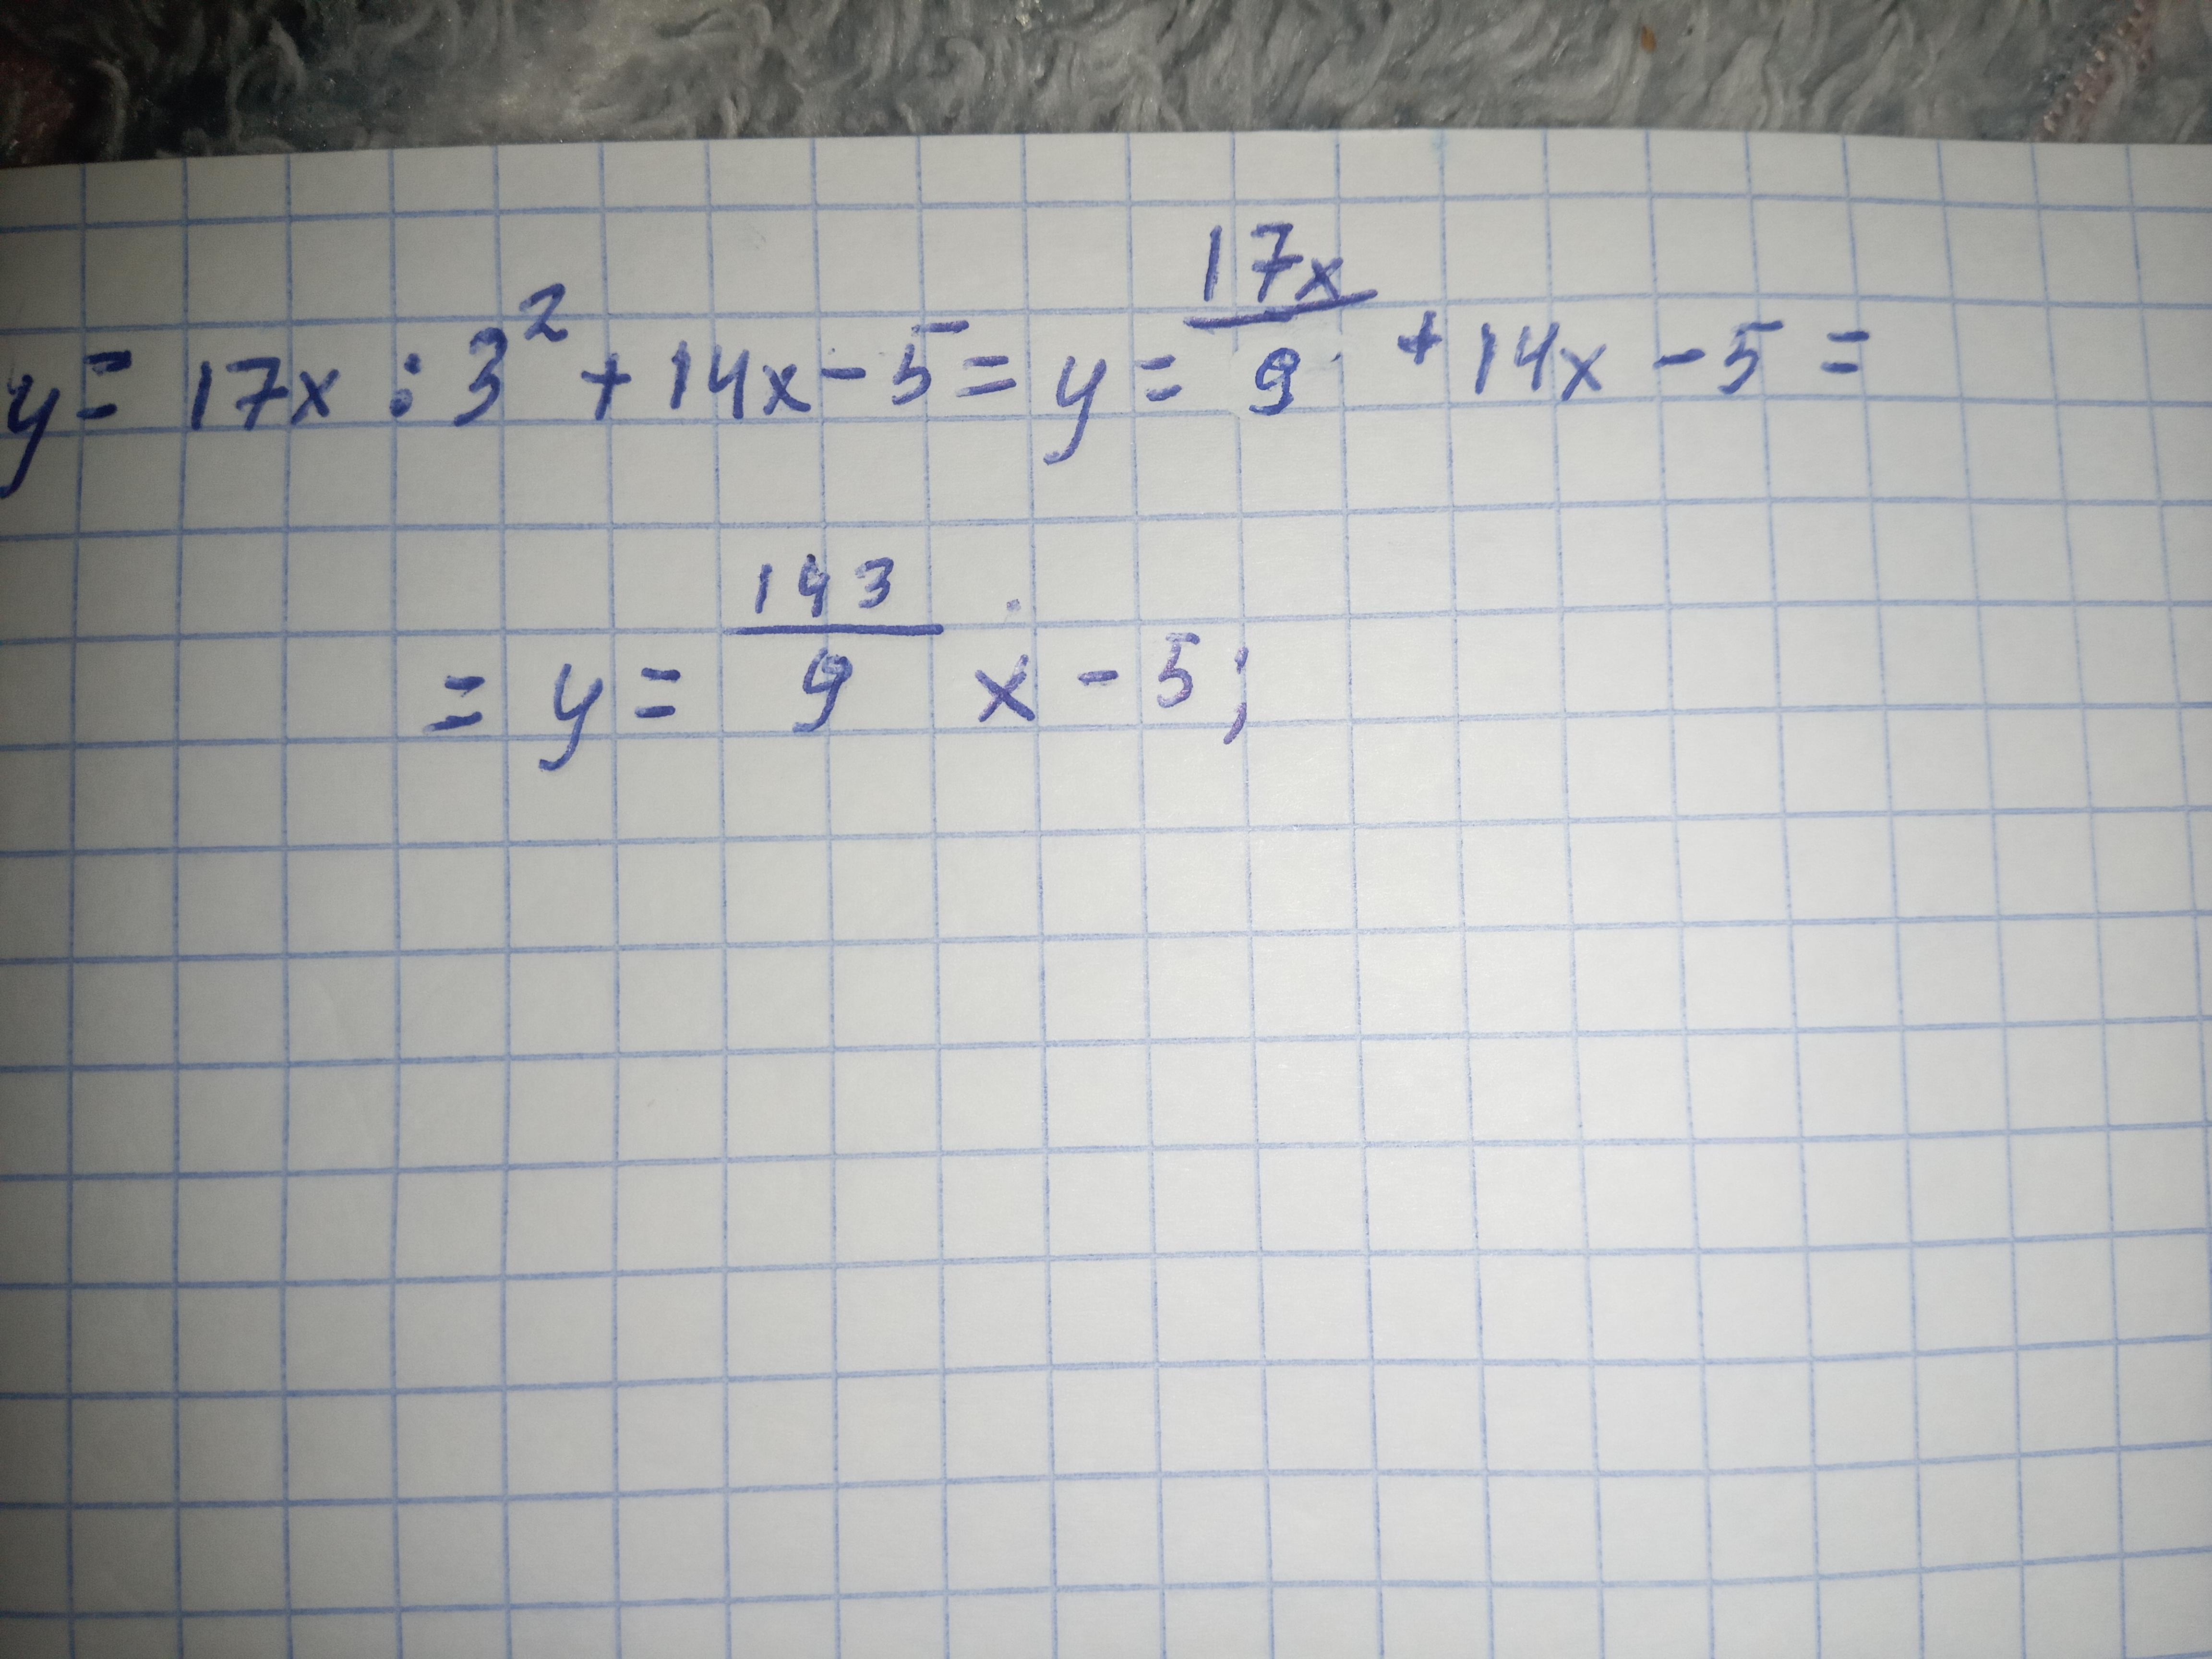 y = 17x : 3² + 14x - 5 = y = 17x/9 + 14x - 5 =
= y = 143/9 x - 5;